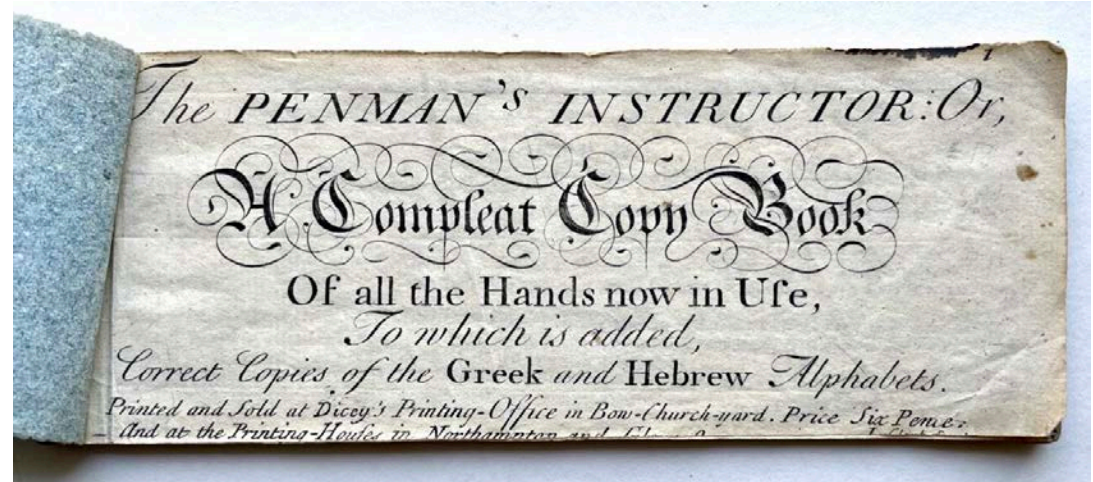 1
The PENMAN's INSTRUCTOR: Or,
A Compleat Copy Book
Of all the Hands now in Uſe,
To which is added,
Correct Copies of the Greek and Hebrew Alphabets.
Printed and Sold at Dicey's Printing-Office in Bow-Church-yard. Price Six Pence:
And at the Printing-Houſes in Northampton and